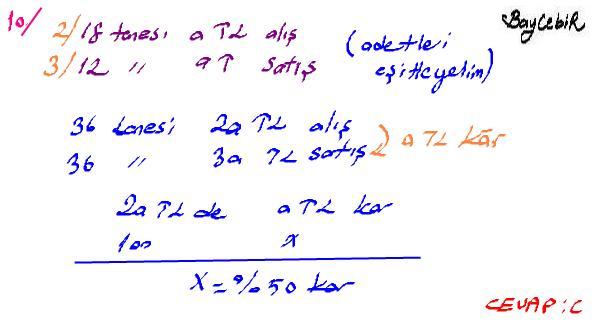 BayCebir
10/ 2/ 18 tanesi a TL alış
3/ 12 " aT satış
(adetleri
eşitleyelim)
36 tanesi 2a TL alış
36 " 3a TL satış
) a TL kâr
2a TL de a TL kar
100 x
x = %50 kar
CEVAP : C